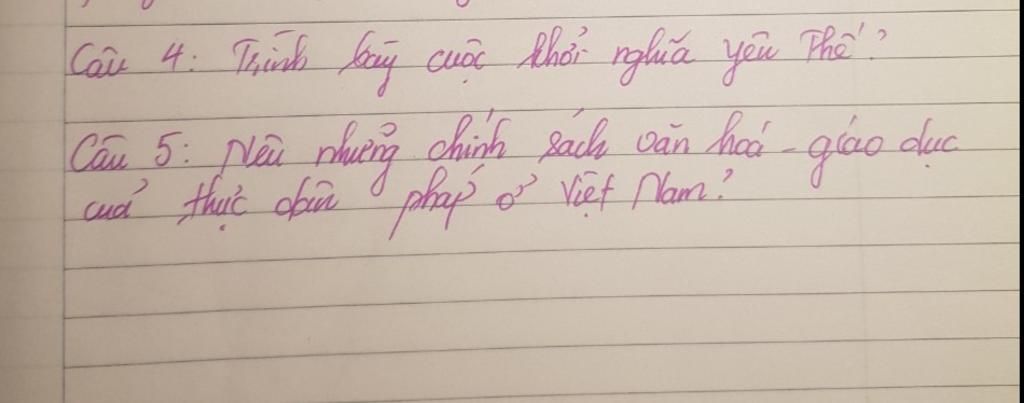 Câu 4: Trình bày cuộc khởi nghĩa yên Thế?
Câu 5: Nêu những chính sách văn hoá - giáo dục
của thực dân pháp ở Việt Nam?